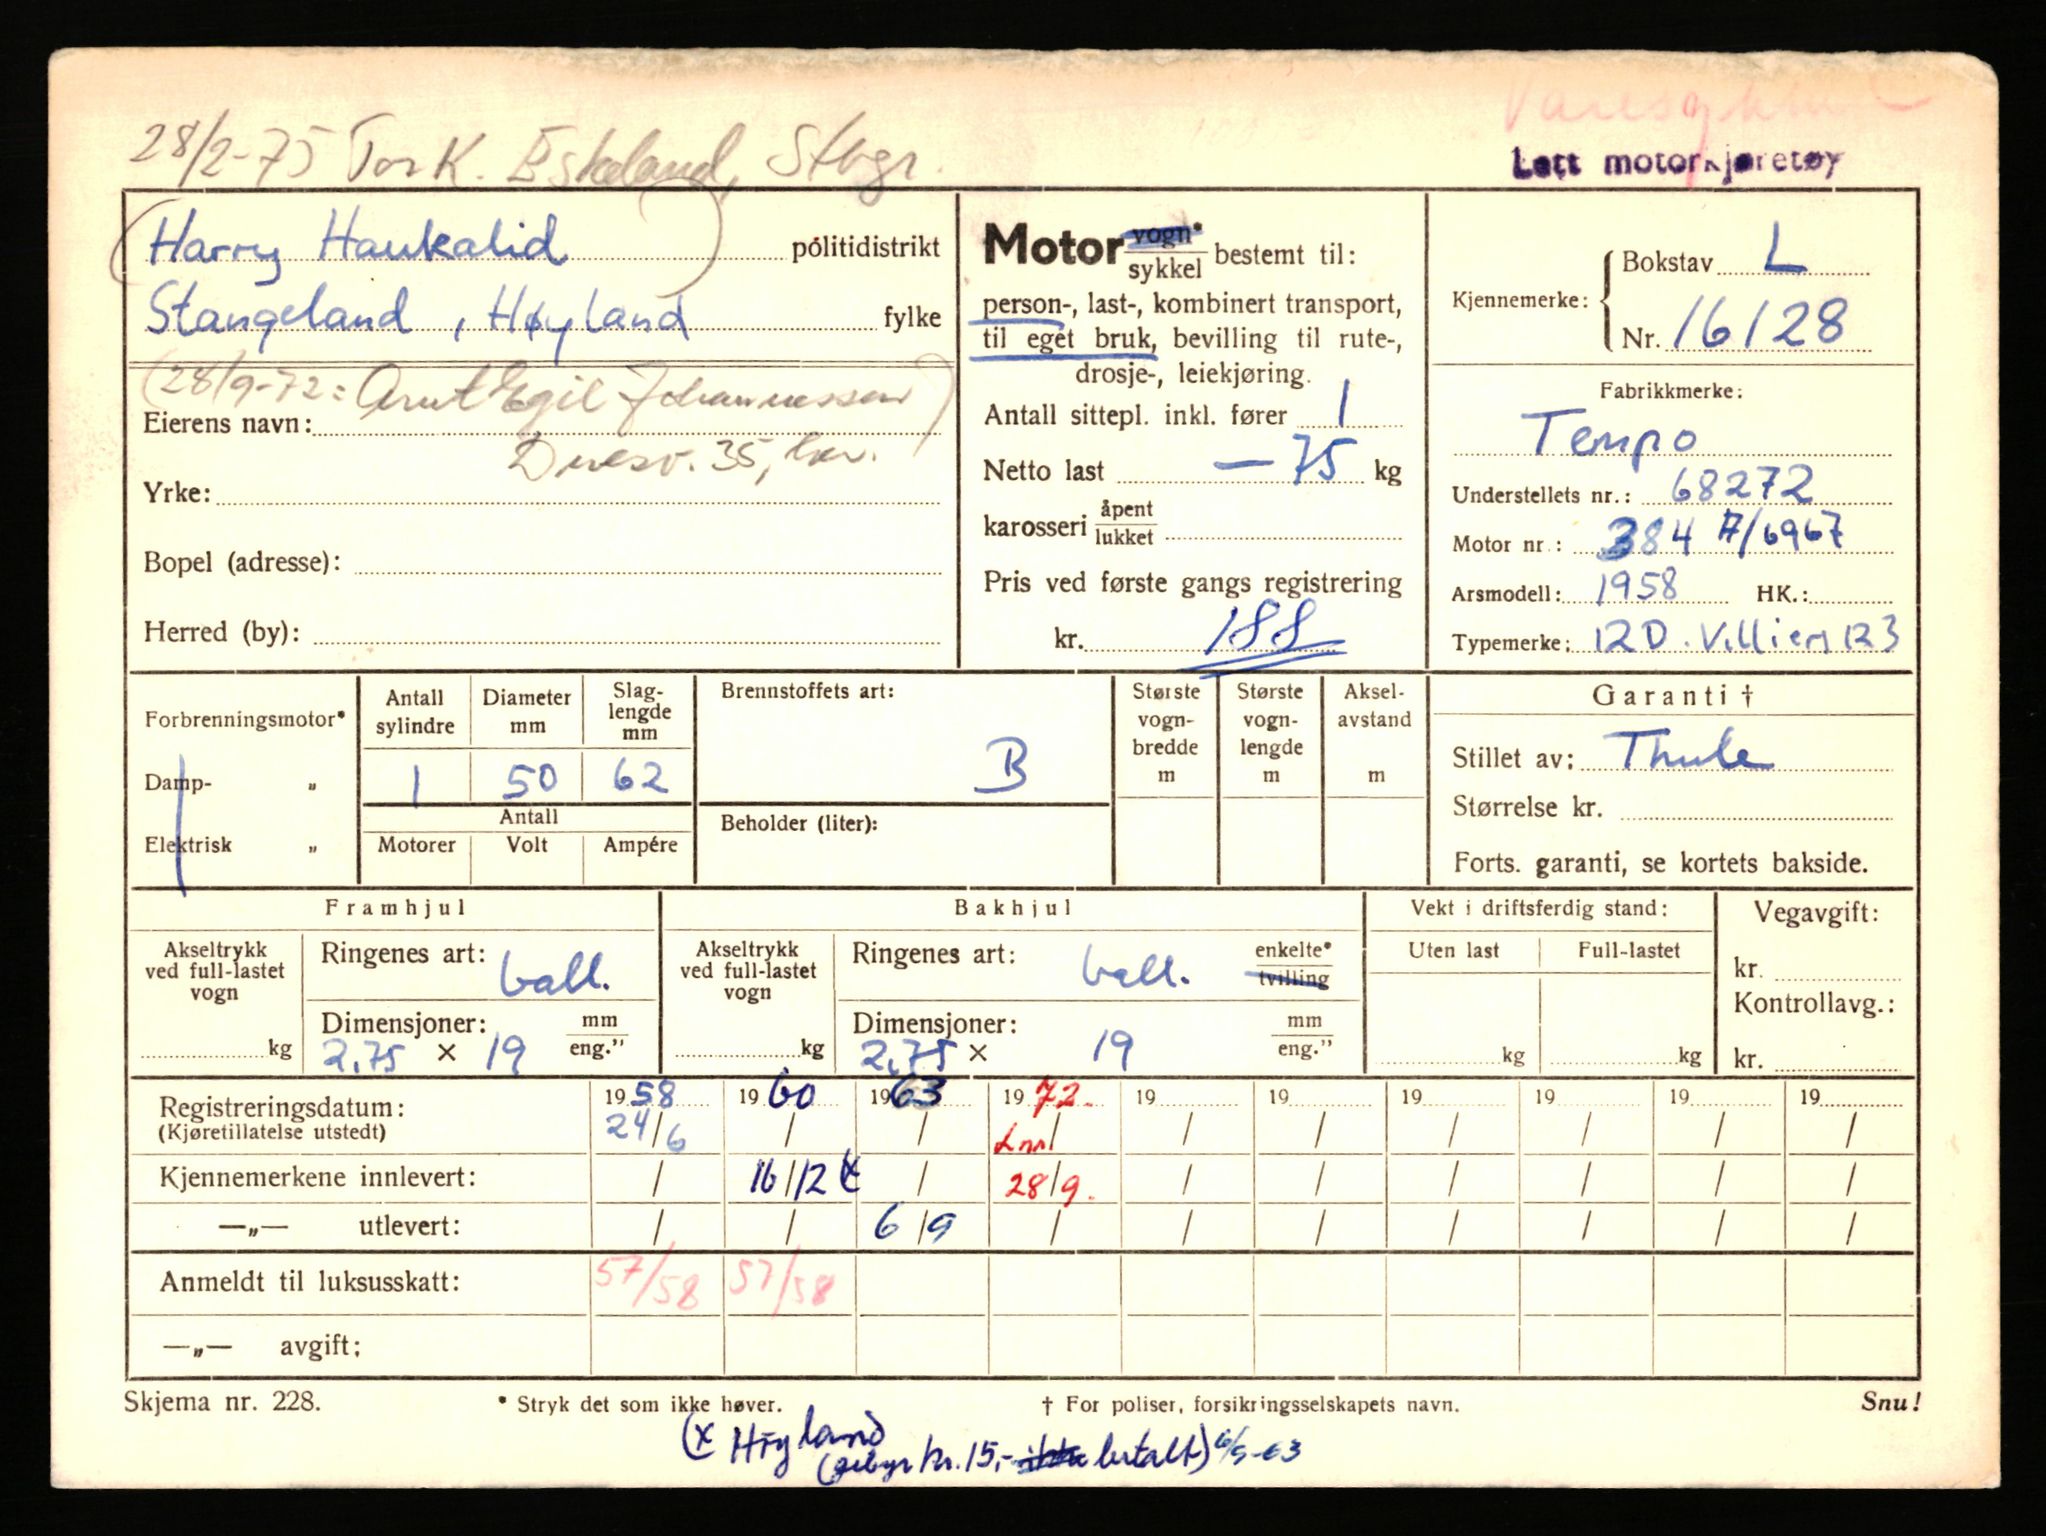 28/2-75 Tor K. Eskeland, Stvgr.
Lett motorkjøretøy
(Harry Haukalid) politidistrikt
Stangeland, Høyland fylke
(28/9-72: Arnt Egil Johannessen)
Eierens navn:
35,
Yrke:
Bopel (adresse):
Herred (by):
Motor vogn* / sykkel bestemt til:
person-, last-, kombinert transport,
til eget bruk, bevilling til rute-,
drosje-, leiekjøring.
Antall sittepl. inkl. fører 1
Netto last — 75 kg
karosseri åpent / lukket
Pris ved første gangs registrering
kr. 188
Kjennemerke: Bokstav L
Nr. 16128
Fabrikkmerke:
Tempo
Understellets nr.: 68272
Motor nr.: 384 A/6967
Arsmodell: 1958 HK.:
Typemerke: 12D. Villiers 123
Forbrenningsmotor*
Damp- "
Elektrisk "
Antall sylindre Diameter mm Slag-lengde mm
1 50 62
Antall
Motorer Volt Ampére
Brennstoffets art:
B
Beholder (liter):
Største vogn-bredde m
Største vogn-lengde m
Aksel-avstand m
Garanti †
Stillet av: Thule
Størrelse kr.
Forts. garanti, se kortets bakside.
Framhjul
Akseltrykk ved full-lastet vogn
kg
Ringenes art: ball.
Dimensjoner: mm / eng."
2.75 × 19
Bakhjul
Akseltrykk ved full-lastet vogn
kg
Ringenes art: ball. enkelte* / tvilling
Dimensjoner: mm / eng."
2.75 × 19
Vekt i driftsferdig stand:
Uten last Full-lastet
kg kg
Vegavgift:
kr.
Kontrollavg.:
kr.
Registreringsdatum: 1958 1960 1963 1972. 19 19 19 19 19 19
(Kjøretillatelse utstedt) 24/6 / / Lnn/ / / / / / /
Kjennemerkene innlevert: / 16/12 x / 28/9. / / / / / /
—„— utlevert: / / 6/9 / / / / / / /
Anmeldt til luksusskatt: 57/58 57/58
—„— avgift:
Skjema nr. 228. * Stryk det som ikke høver. † For poliser, forsikringsselskapets navn. Snu!
(x Høyland
(gebyr kr. 15,- ikke betalt) 6/9-63